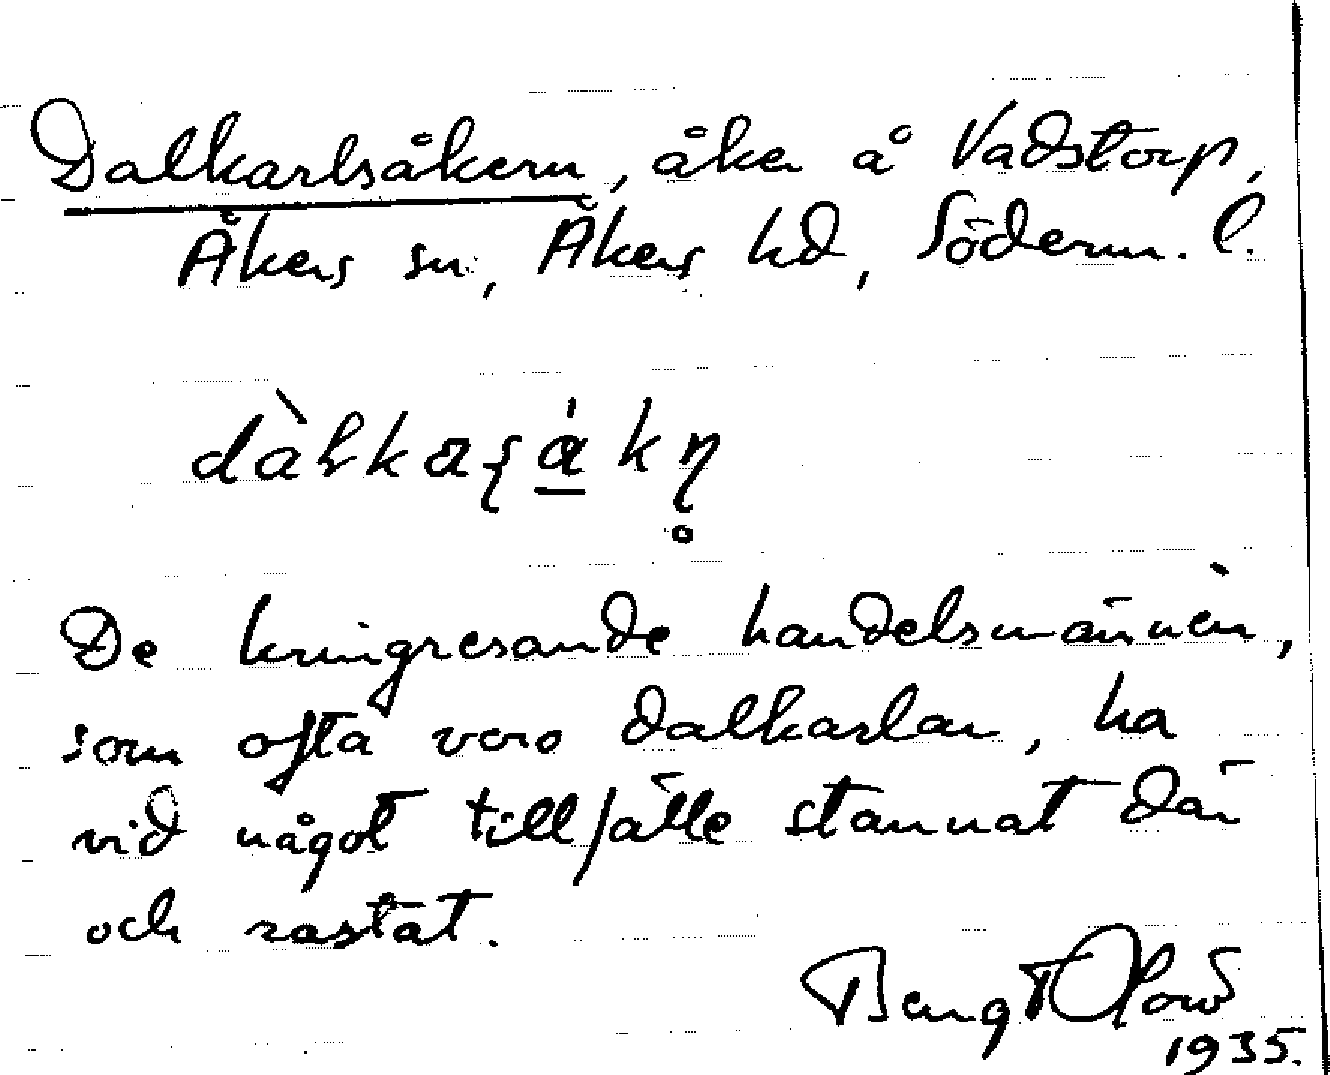 Dalkarlsåkern, åker å Vadstorp,
Åkers sn, Åkers hd, Söderm. l.
De kringresande handelsmännen,
som ofta voro dalkarlar, ha
vid något tillfälle stannat där
och rastat.
Bengt
1935.